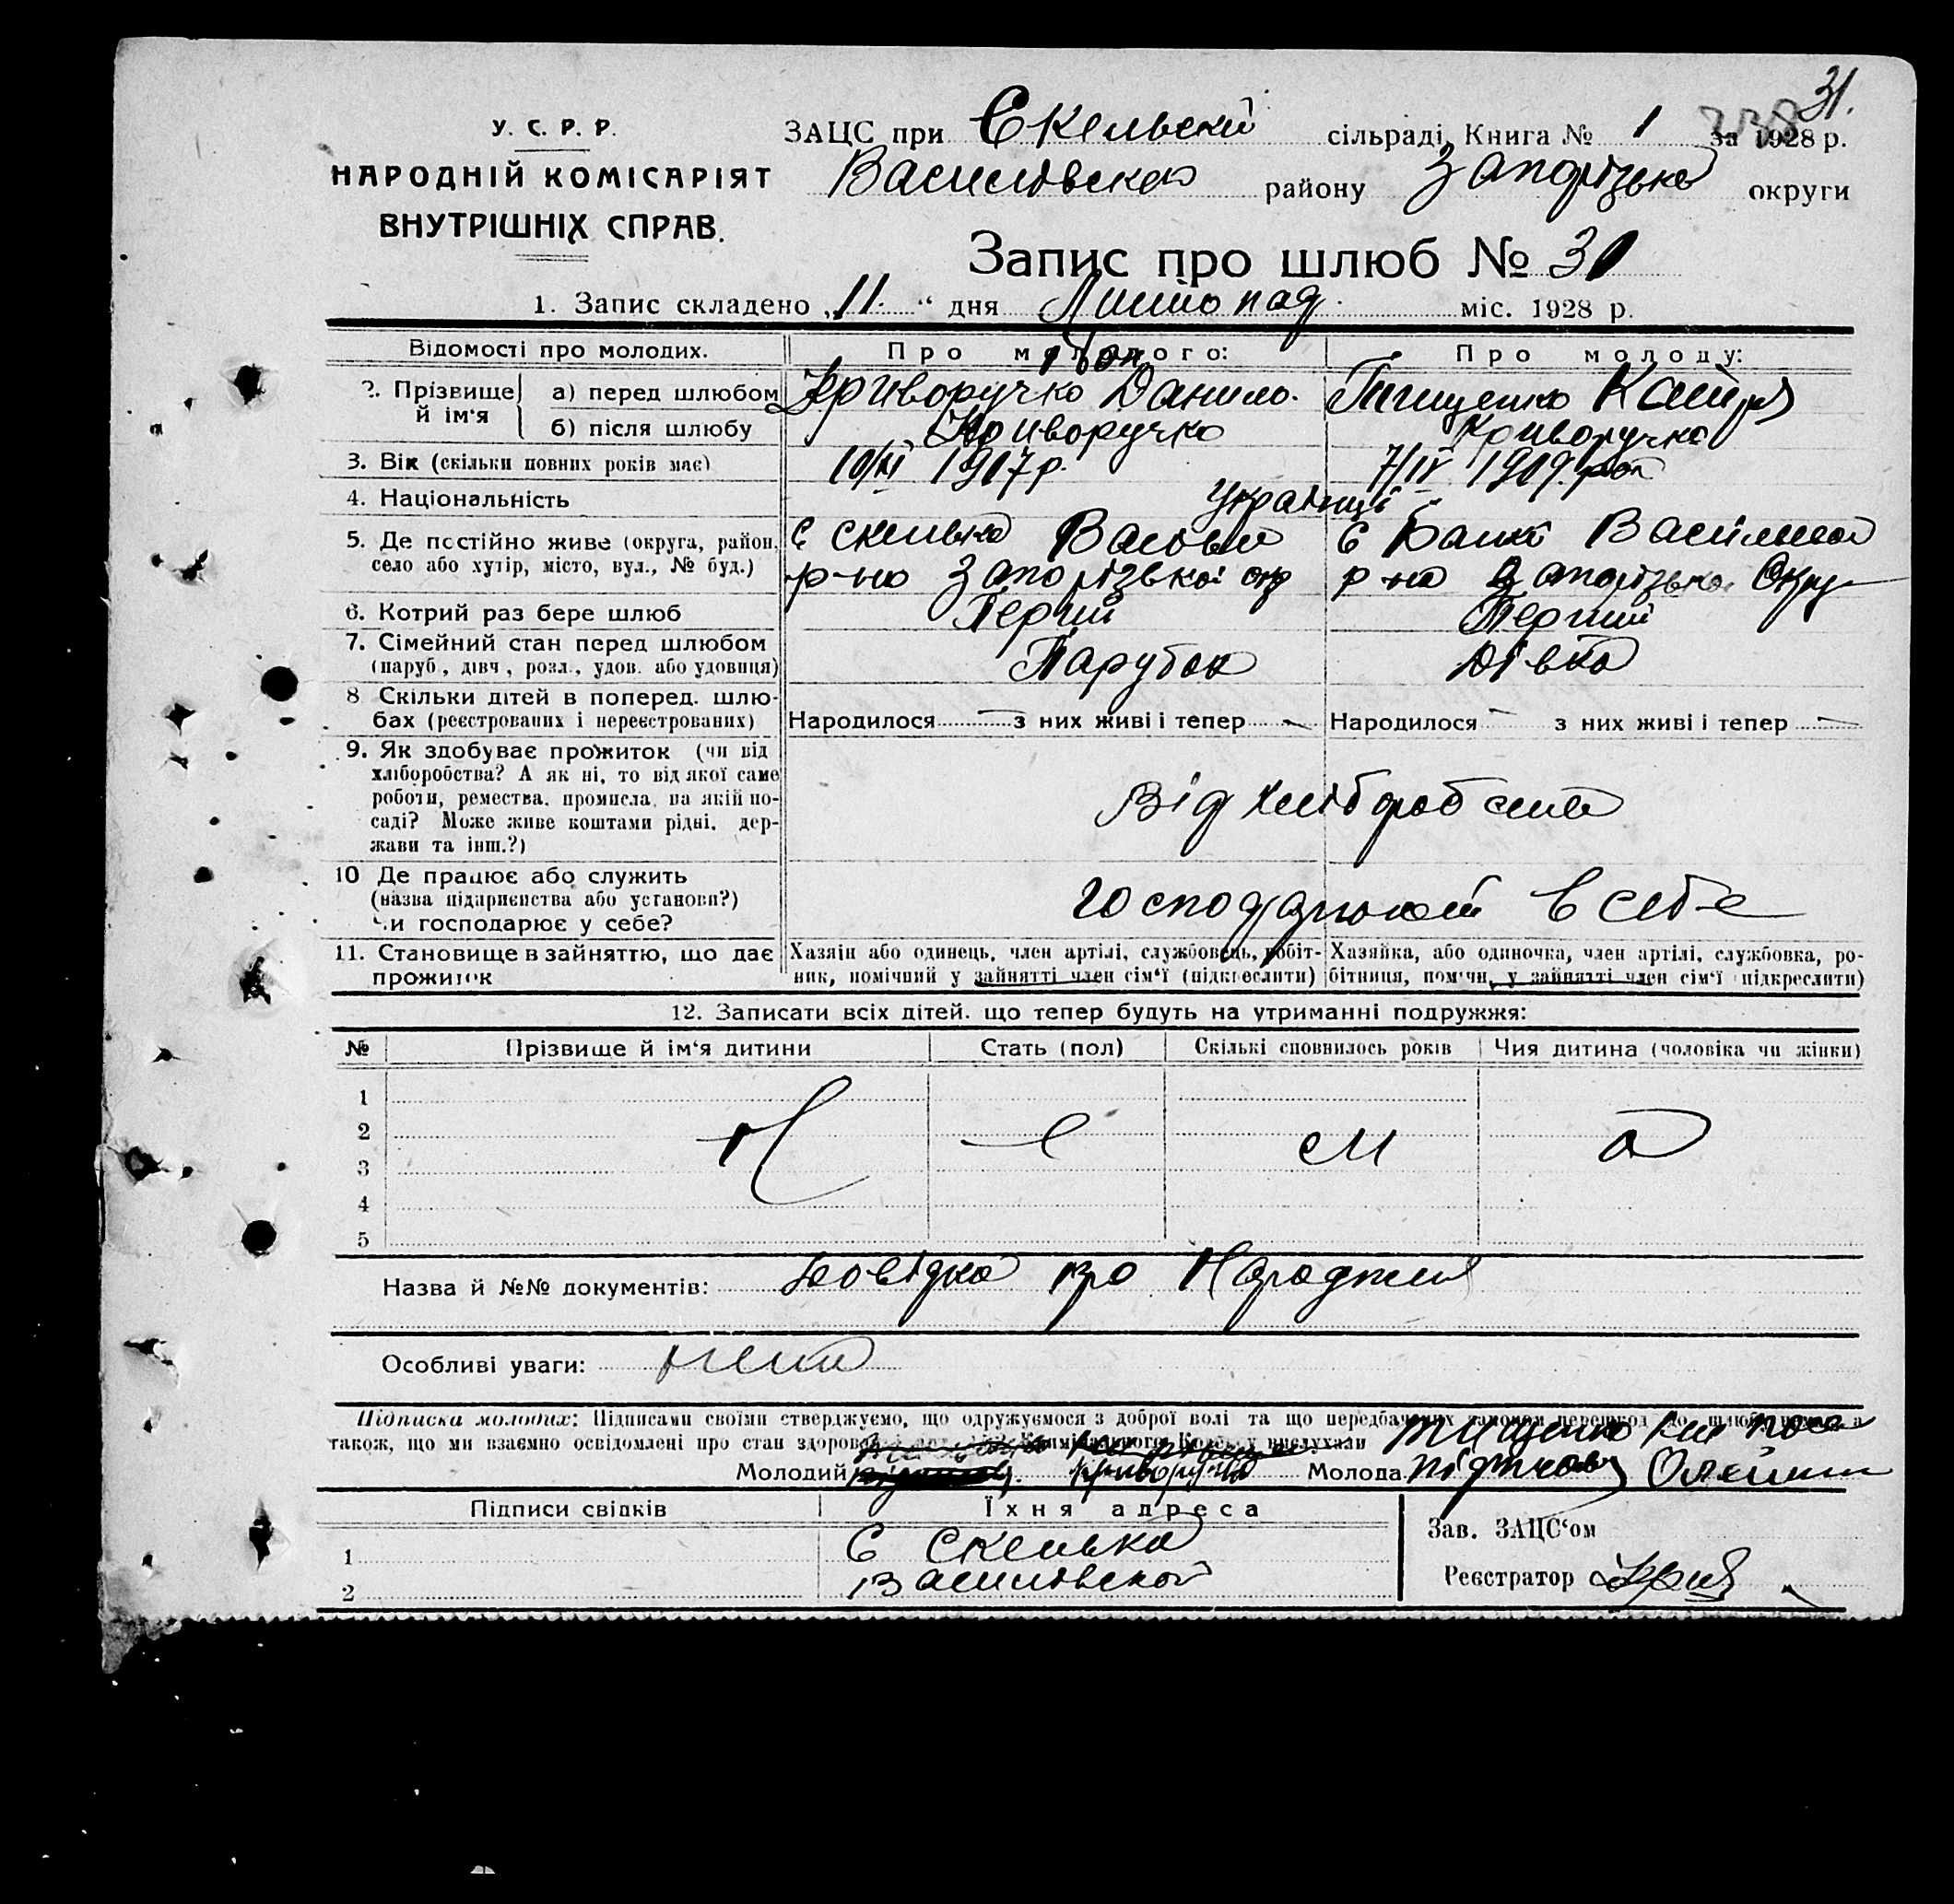 31.
У. С. Р. Р.
НАРОДНІЙ КОМІСАРІЯТ
ВНУТРІШНІХ СПРАВ.
ЗАЦС при Скельскій сільраді, Книга № 1 за 1928 р.
району Запорізької округи
Запис про шлюб № 31
1. Запис складено „11“ дня Листопад міс. 1928 р.
Відомості про молодих. Про молодого: Про молоду:
2. Прізвище й ім‘я а) перед шлюбом Криворучко Данило. Тищенко
б) після шлюбу Криворучко Криворучко
3. Вік (скільки повних років має) 1907 р. 7/IV 1909.
4. Національність Українці
5. Де постійно живе (округа, район, с Скелька с Балки
село або хутір, місто, вул., № буд.) р-на Запорізької окр р-на Запорізької Окру
6. Котрий раз бере шлюб Перший Перший
7. Сімейний стан перед шлюбом
(паруб., дівч., розл., удов. або удовиця) Парубок Дівка
8 Скільки дітей в поперед. шлю-
бах (реєстрованих і нереєстрованих) Народилося — з них живі і тепер — Народилося — з них живі і тепер —
9. Як здобуває прожиток (чи від
хліборобства? А як ні, то від якої саме
роботи, ремества, промисла, на якій по-
саді? Може живе коштами рідні, дер-
жави та інш.?)
Від хлібороб ства
10 Де працює або служить
(назва підприємства або установи?)
Чи господарює у себе?
в себе
11. Становище в зайняттю, що дає
прожиток
Хазяїн або одинець, член артілі, службовець, робіт-
ник, помічний у зайнятті член сім‘ї (підкреслити)
Хазяйка, або одиночка, член артілі, службовка, ро-
бітниця, помічн. у зайнятті член сім‘ї (підкреслити)
12. Записати всіх дітей, що тепер будуть на утриманні подружжя:
№ Прізвище й ім‘я дитини Стать (пол) Скількі сповнилось років Чия дитина (чоловіка чи жінки)
1
2 Н е м а
3
4
5
Назва й №№ документів: Довідка про
Особливі уваги: нема
Підписка молодих: Підписами своїми стверджуємо, що одружуємося з доброї волі та що передбачених законом перешкод до шлюбу нема, а
також, що ми взаємно освідомлені про стан здоровя Кримінального Кодексу вислухали
Молодий Криворучко Молода Тищенко
Підписи свідків Їхня адреса
1 С Скелька
2
Зав. ЗАЦС‘ом
Реєстратор